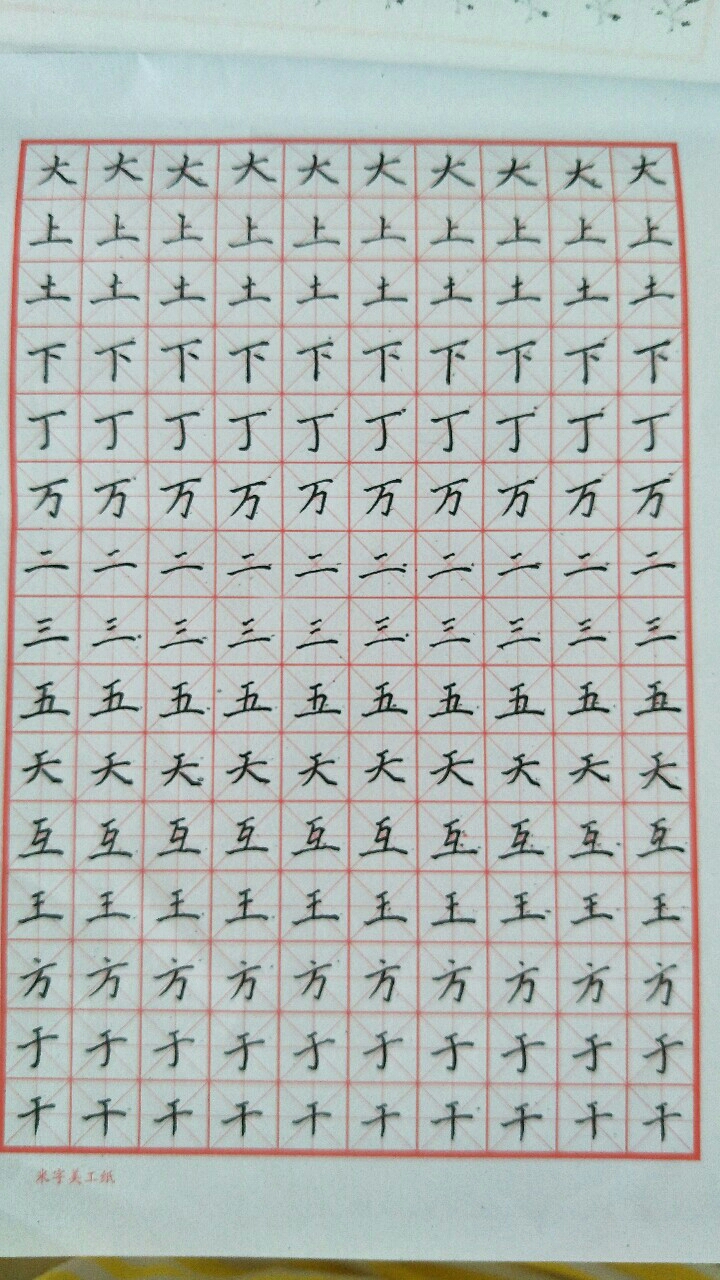 大大大大大大大大大大
上上上上上上上上上上
土土土土土土土土土土
下下下下下下下下下下
丁丁丁丁丁丁丁丁丁丁
万万万万万万万万万万
二二二二二二二二二二
三三三三三三三三三三
五五五五五五五五五五
天天天天天天天天天天
互互互互互互互互互互
王王王王王王王王王王
方方方方方方方方方方
于于于于于于于于于于
干干干干干干干干干干
米字美工纸